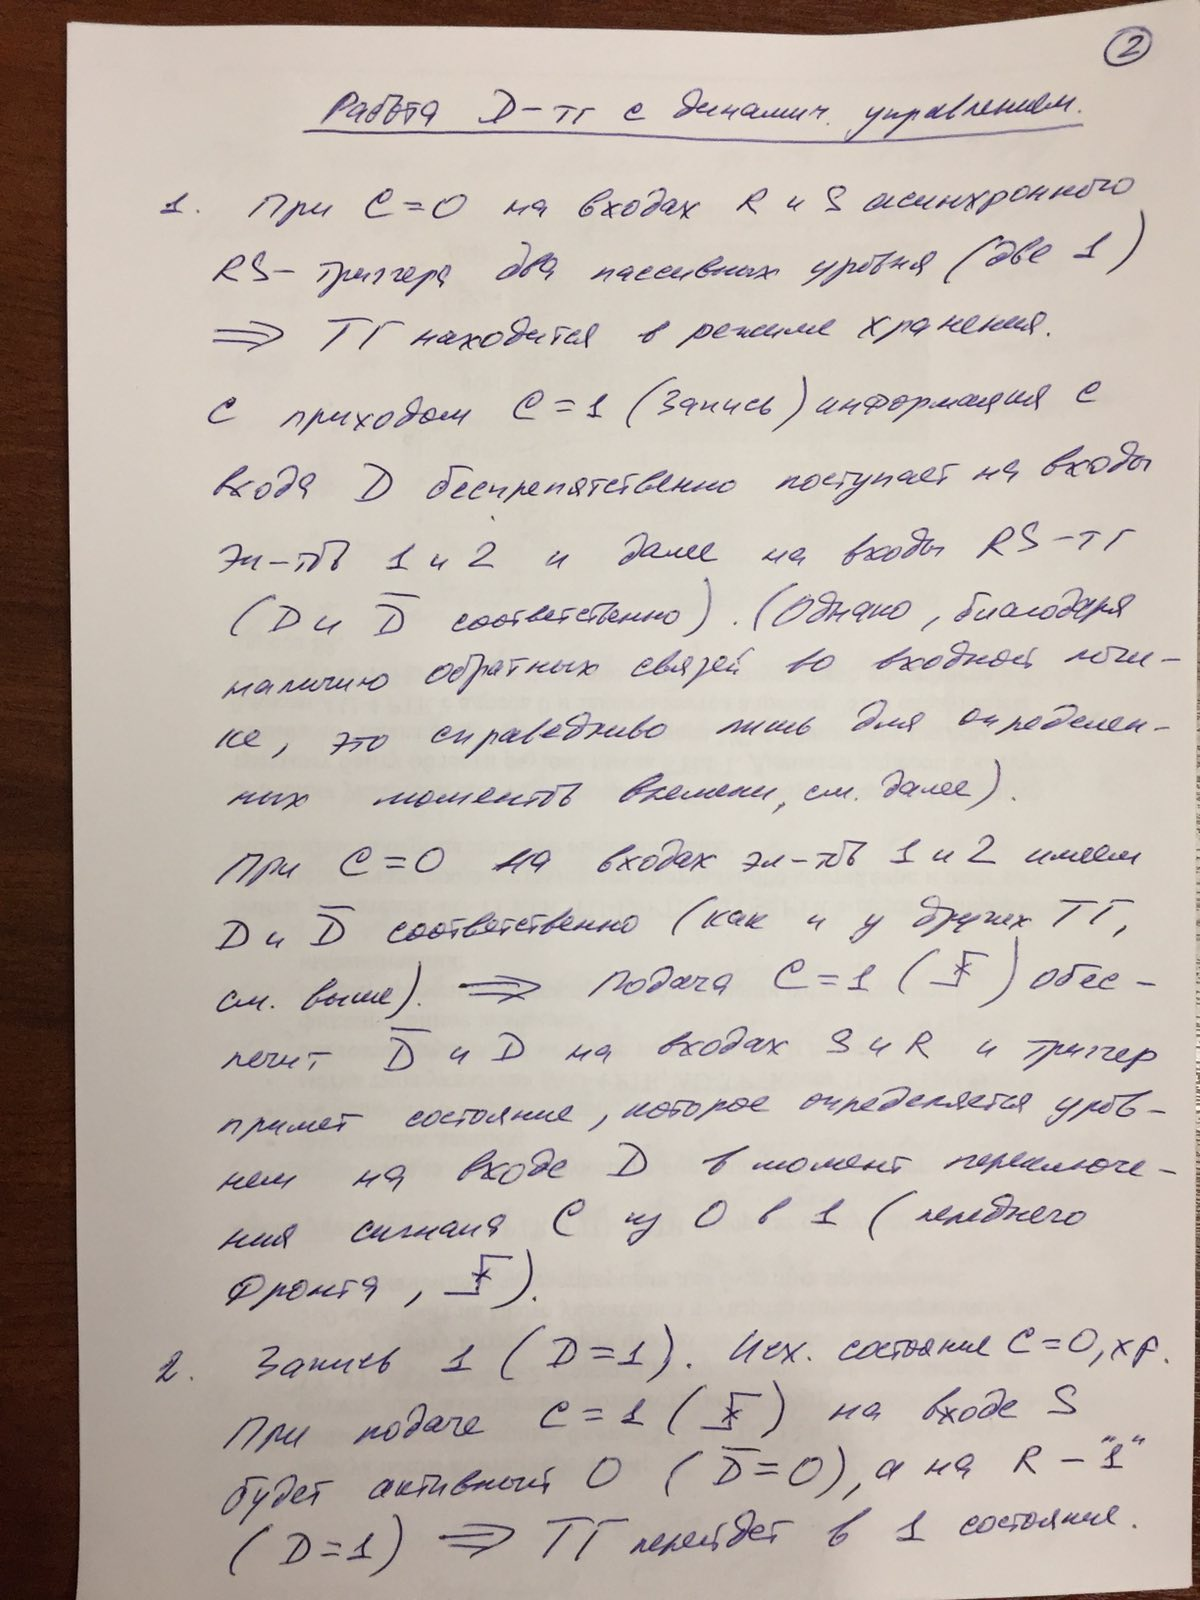 2
Работа D-тг с динамич. управлением.
1. При C=0 на входах R и S асинхронного
RS-триггера два пассивных уровня (две 1)
⇒ ТГ находится в режиме хранения.
С приходом C=1 (запись) информация с
входа D беспрепятственно поступает на входы
эл-тов 1 и 2 и далее на входы RS-тг
(D и D̅ соответственно). (Однако, благодаря
наличию обратных связей во входной логи-
ке, это справедливо лишь для определен-
ных моментов времени, см. далее).
При C=0 на входах эл-тов 1 и 2 имеем
D и D̅ соответственно (как и у других ТГ,
см. выше). ⇒ Подача C=1 (↑) обес-
печит D̅ и D на входах S и R и триггер
примет состояние, которое определяется уров-
нем на входе D в момент переключе-
ния сигнала C из 0 в 1 (переднего
фронта, ↑).
2. Запись 1 (D=1). Исх. состояние C=0, хр.
При подаче C=1 (↑) на входе S
будет активный 0 (D̅=0), а на R - "1"
(D=1) ⇒ ТГ перейдет в 1 состояние.